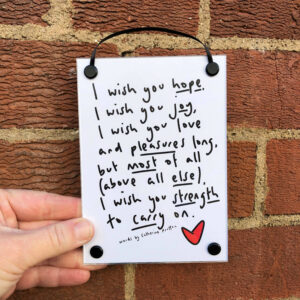 I wish you hope.
I wish you joy,
I wish you love
and pleasures long,
but most of all
(above all else),
I wish you strength
to carry on.
words by Catherine